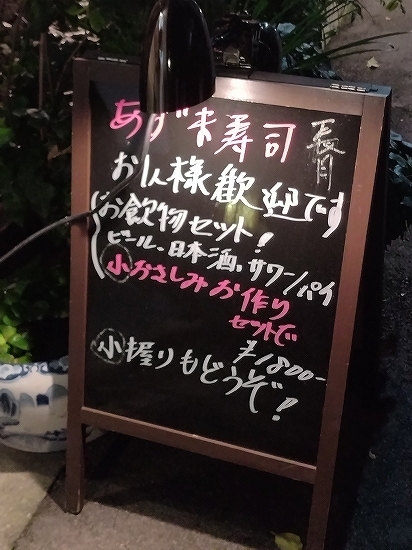 あづま寿司 長月
お1人様歓迎です
お飲物セット!
ビール、日本酒、サワー/パイ
小おさしみお作り
セットで
¥1800-
小握りもどうぞ!